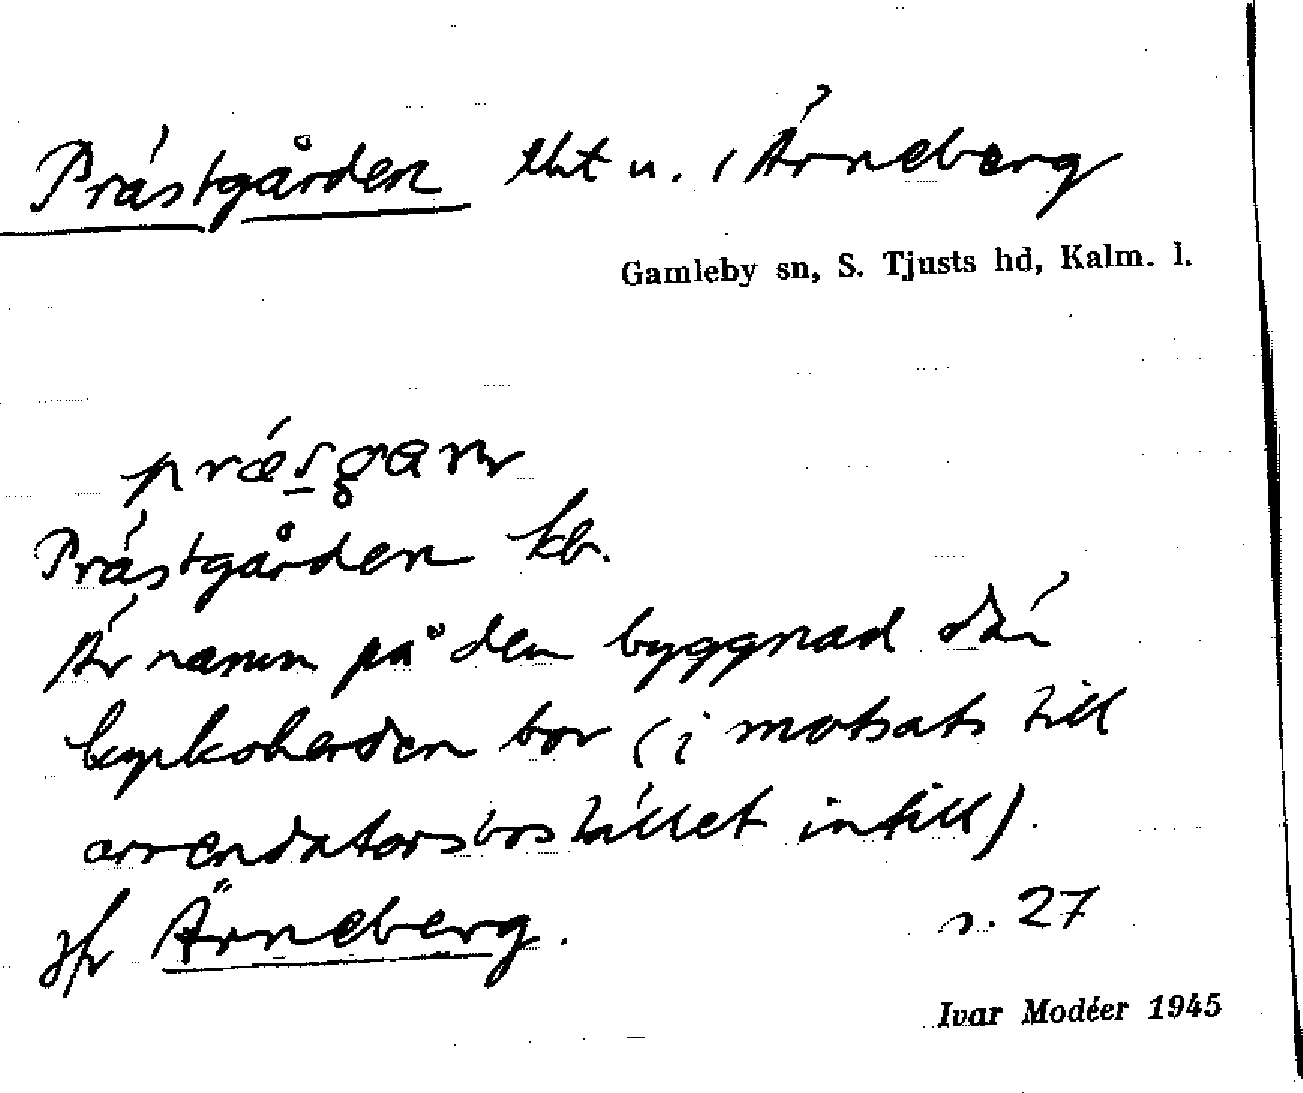 Prästgården tht u. i Ärneberg
Gamleby sn, S. Tjusts hd, Kalm. l.
Prästgården kb.
Är namn på den byggnad där
kyrkoherden bor (i motsats till
arrendatorsbostället intill).
jfr Ärneberg. s. 27
Ivar Modéer 1945